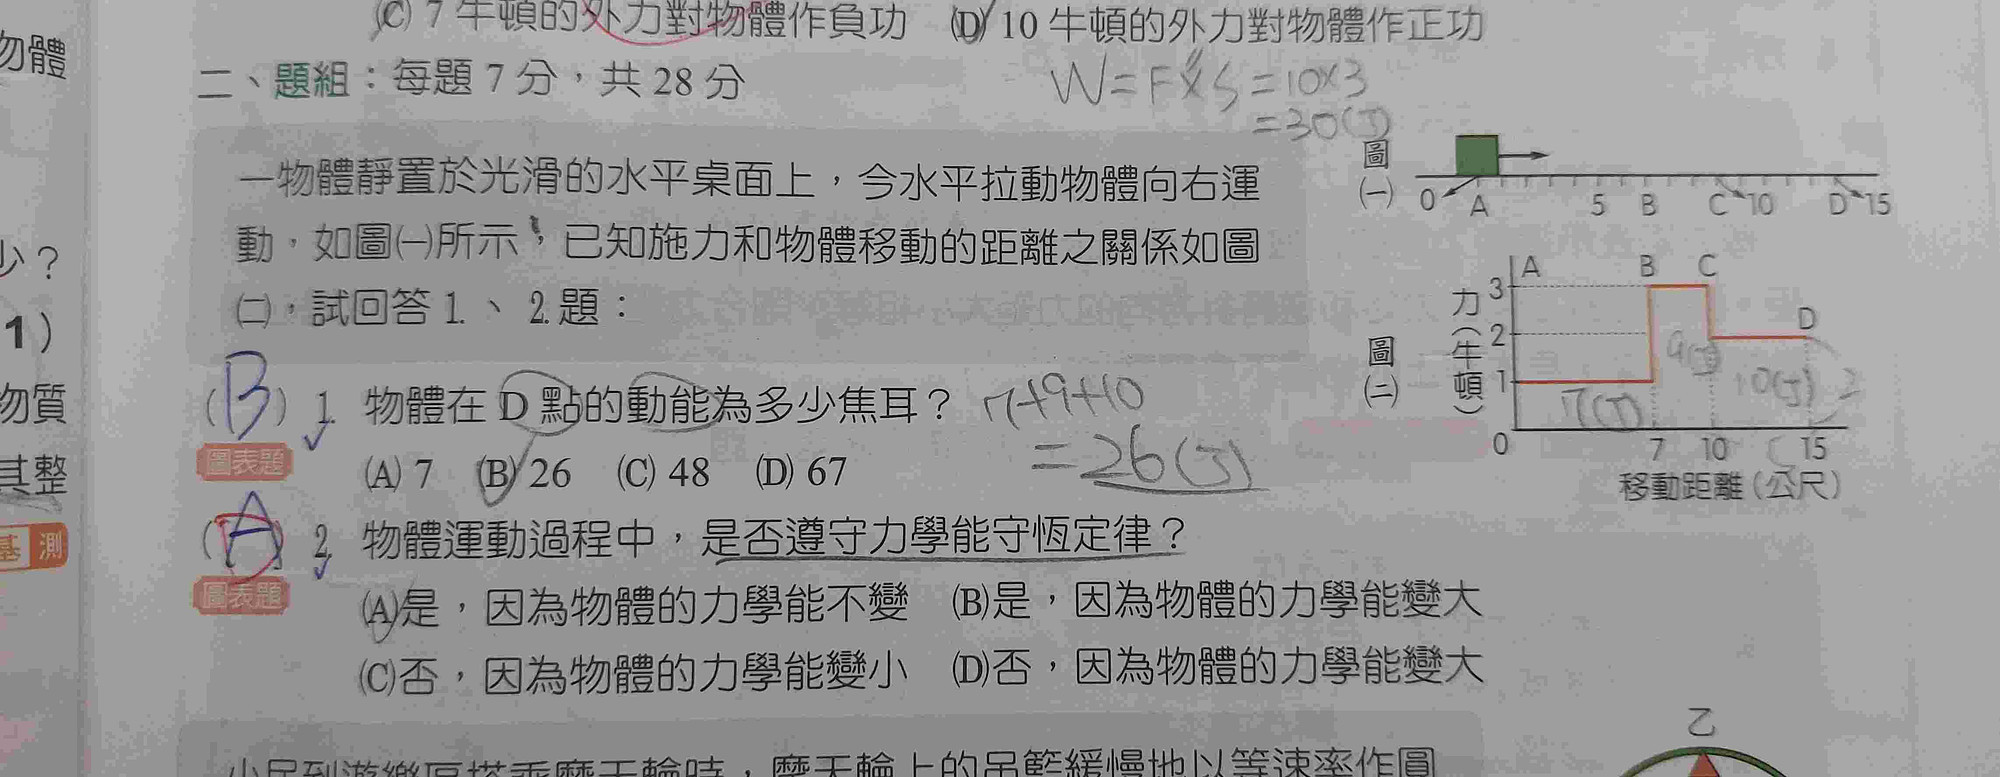 (C) 7 牛頓的外力對物體作負功 (D) 10 牛頓的外力對物體作正功
二、題組：每題 7 分，共 28 分
W=F×S=10×3
=30(J)
一物體靜置於光滑的水平桌面上，今水平拉動物體向右運
動，如圖㈠所示，已知施力和物體移動的距離之關係如圖
㈡，試回答 1.、 2.題：
圖㈠
0 A 5 B C 10 D 15
圖㈡
力（牛頓）
A B C D
3
2
1
0 7 10 15
移動距離（公尺）
7(J) 9(J) 10(J)
(B) 1. 物體在 D 點的動能為多少焦耳？ 7+9+10
=26(J)
圖表題
(A) 7 (B) 26 (C) 48 (D) 67
(A) 2. 物體運動過程中，是否遵守力學能守恆定律？
圖表題
(A)是，因為物體的力學能不變 (B)是，因為物體的力學能變大
(C)否，因為物體的力學能變小 (D)否，因為物體的力學能變大
乙
物體
少？
1）
物質
其整
基測